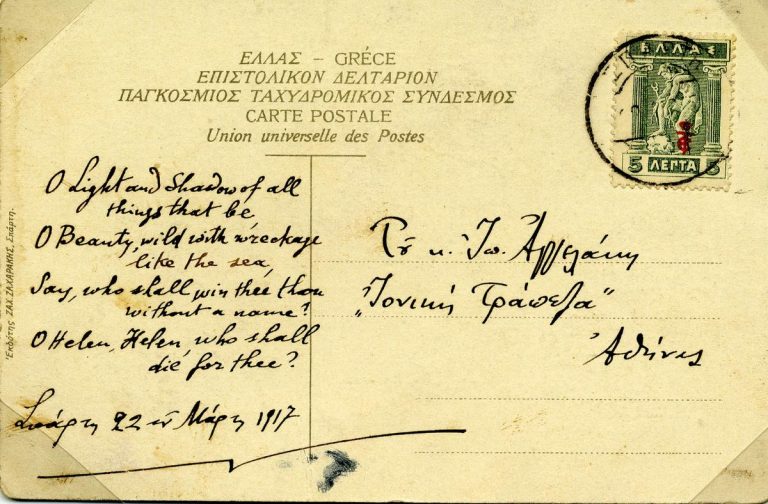 ΕΛΛΑΣ – GRÉCE
ΕΠΙΣΤΟΛΙΚΟΝ ΔΕΛΤΑΡΙΟΝ
ΠΑΓΚΟΣΜΙΟΣ ΤΑΧΥΔΡΟΜΙΚΟΣ ΣΥΝΔΕΣΜΟΣ
CARTE POSTALE
Union universelle des Postes
ΕΛΛΑΣ
5 ΛΕΠΤΑ 5
O Light and Shadow of all
things that be
O Beauty, wild with wreckage
like the sea,
Say, who shall win thee thou
without a name?
O Helen, Helen, who shall
die for thee?
Σπάρτη 22 Μάρτη 1917
Ἀγγελάκη
„Ἰονική Τράπεζα"
Ἀθήνας
Ἐκδότης ΖΑΧ. ΖΑΧΑΡΑΚΗΣ, Σπάρτη.